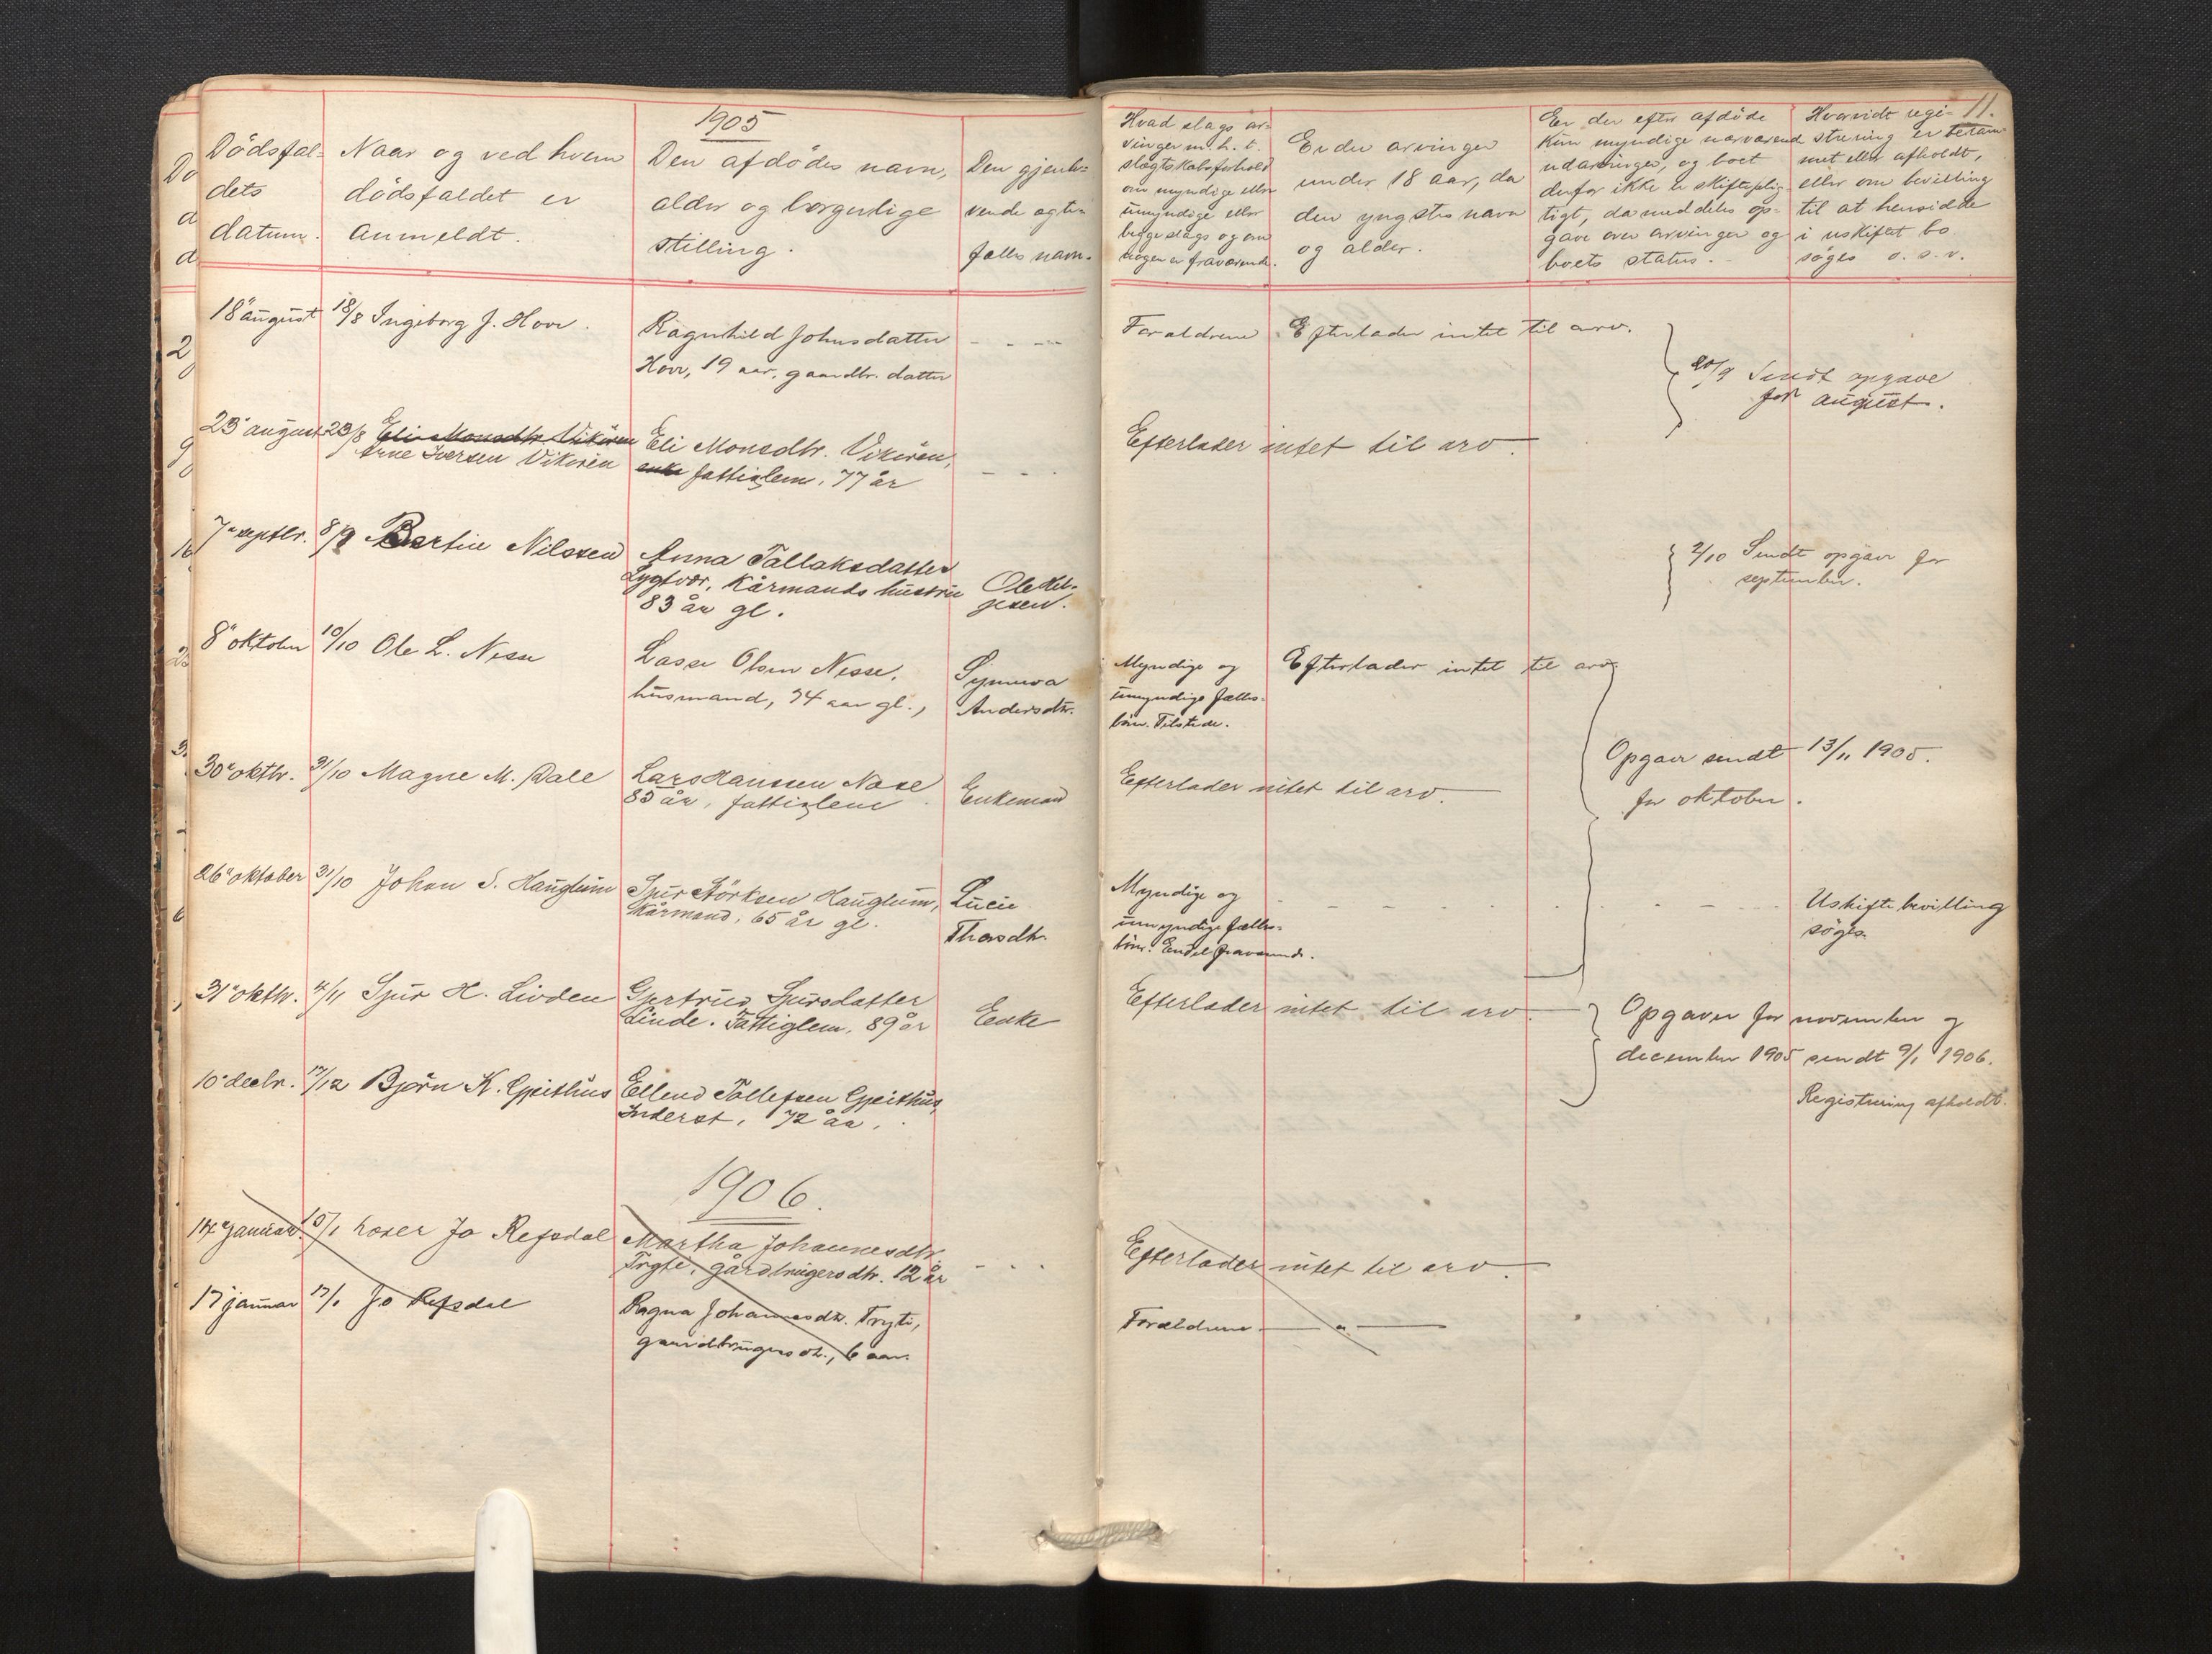 1905
11.
Dödsfal-
dets
datum.
Naar og ved hvem
dödsfaldet er
anmeldt.
Den afdödes navn,
alder og borgerlige
stilling.
Den gjenle-
vende ægte-
fælles navn.
Hvad slags ar-
vinger m. h. t.
slægtskabsforhold
om myndige eller
umyndige eller
begge slags og om
nogen er fraværende.
Er der arvinger
under 18 aar, da
den yngstes navn
og alder.
Er der efter afdöde
kun myndige nærværend
udarvinger, og boet
derfor ikke er skifteplig-
tigt, da meddeles op-
gave over arvinger og
boets status.
Hvorvidt regi-
strering er beram-
met eller afholdt,
eller om bevilling
til at hensidde
i uskiftet bo
söges o. s. v.
18 august 18/8 Ingeborg J. Hove.
Ragnhild Johnsdatter
Hove, 19 aar, gaardbr. datter
Forældrene Efterlader intet til arv.
20/9 Sendt opgave
for august.
23 august 23/8 Eli Monsdtr. Vikören
Arne Iversen Vikören
Eli Monsdtr. Vikören,
enke fattiglem, 77 år
Efterlader intet til arv.
7 septbr. 8/9 Bertin Nilssen
Anna Tallaksdatter
kårmands hustru
83 år gl.
Ole Hel-
gesen.
2/10 Sendt opgave for
september.
8 oktober 10/10 Ole L. Nesse
Lasse Olsen Nesse,
husmand, 74 aar gl.,
Synneva
Andersdtr.
Myndige og
umyndige fælles-
börn. Tilstede.
Efterlader intet til arv.
30 oktbr. 31/10 Magne M. Dale
Lars Hansen Nase
85 år, fattiglem
Enkemand
Efterlader intet til arv.
Opgave sendt 13/11 1905.
for oktober.
26 oktober 31/10 Johan S. Hauglum
Sjur Störksen Hauglum,
Kårmand, 65 år gl.
Lucie
Thorsdtr.
Myndige og
umyndige fælles-
börn. Endel fraværende.
Uskiftebevilling
söges.
31 oktbr. 4/11 Sjur H. Linden
Gjertrud Sjursdatter
Linde. Fattiglem, 89 år
Enke
Efterlader intet til arv.
Opgaver for november og
december 1905 sendt 9/1 1906.
10 decbr. 17/12 Björn K. Gjeithus
Ellend Tollefsen Gjeithus,
Inderst, 72 åa.
Registrering afholdt.
1906.
14 januar. 15/1 Lærer Jo Refsdal
Martha Johannesdtr.
Tryti, gårdbrugersdtr. 12 år
Efterlader intet til arv.
17 januar 17/1 Jo Refsdal
Ragna Johannesdtr. Tryti,
gaardbrugersdtr., 6 aar.
Forældrene — " —